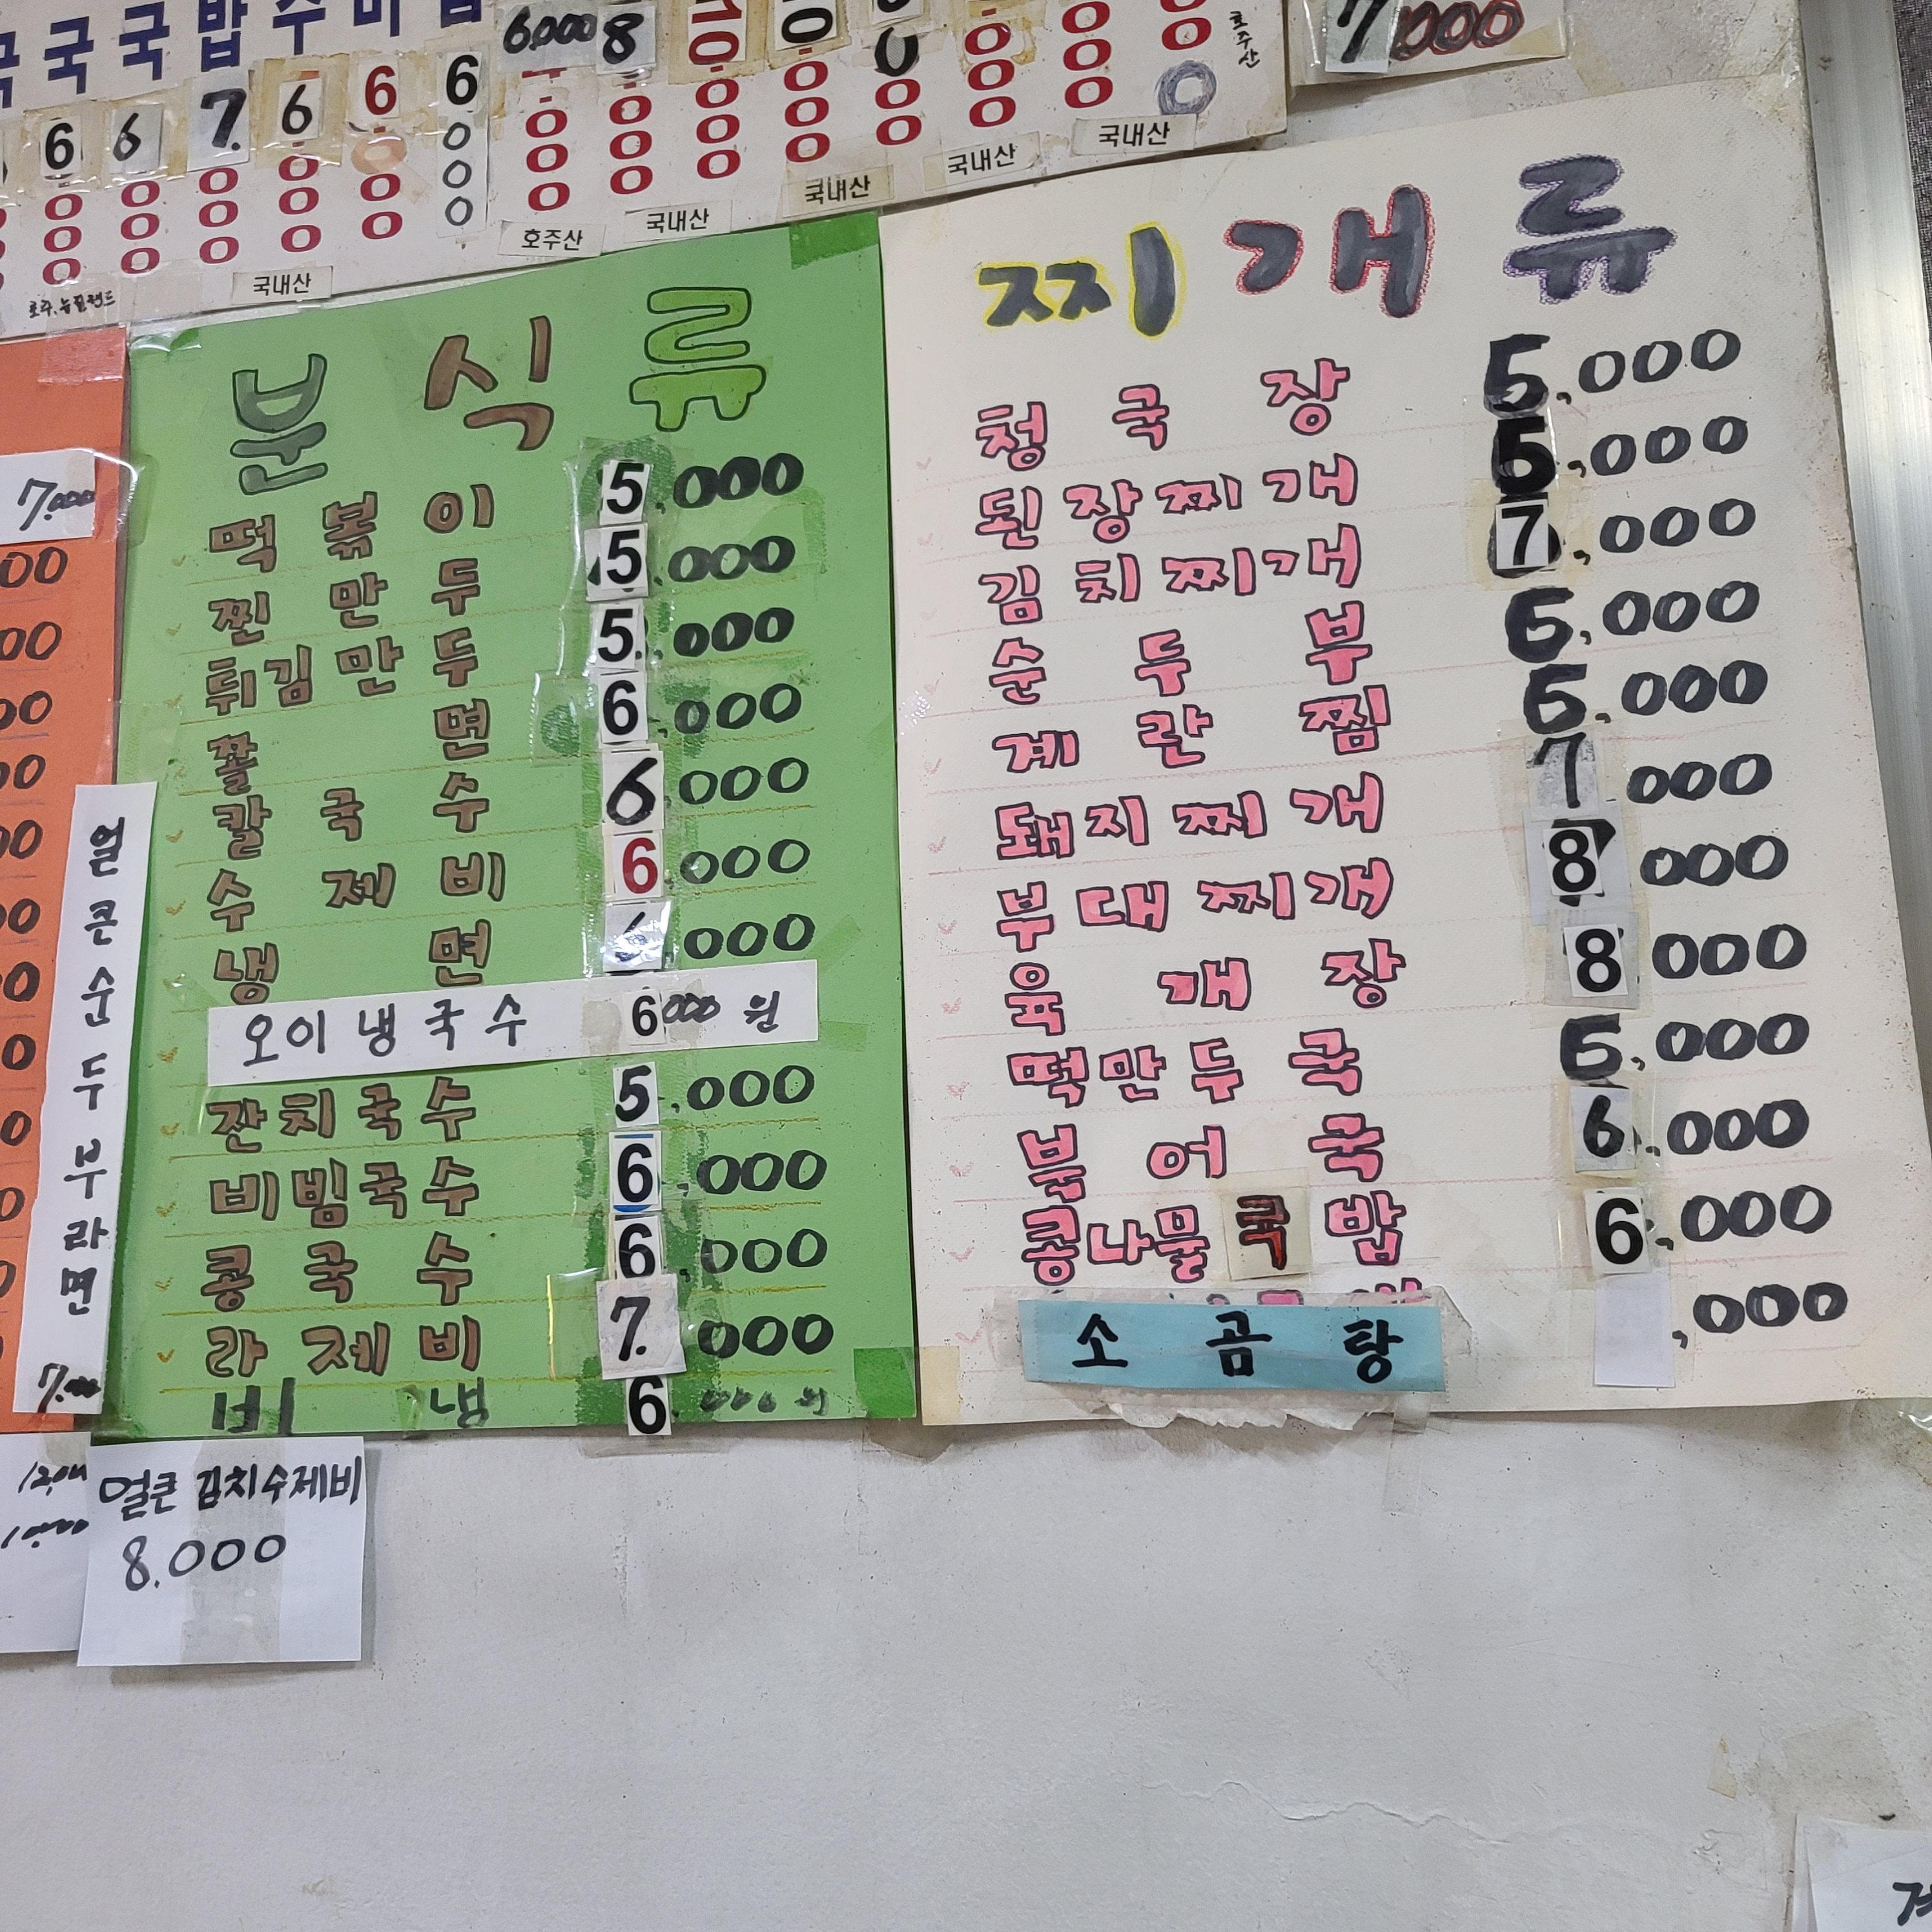 국 국 밥 수 비 밥
6 6 7. 6 6 6 6,000 8 10. 10.
000
호주산
7,000
호주.뉴질랜드
국내산
호주산
국내산
국내산
국내산
국내산
분식류
떡볶이 5,000
찐만두 5,000
튀김만두 5,000
쫄면 6,000
칼국수 6,000
수제비 6,000
냉면 ,000
오이냉국수 6000원
잔치국수 5,000
비빔국수 6,000
콩국수 6,000
라제비 7.000
비냉 6.000원
찌개류
청국장 5,000
된장찌개 5,000
김치찌개 7,000
순두부 6,000
계란찜 6,000
돼지찌개 7000
부대찌개 8000
육개장 8000
떡만두국 6,000
북어국 6,000
콩나물국밥 6,000
소곰탕 ,000
7.000
얼큰순두부라면
7.000
얼큰 김치수제비
8.000